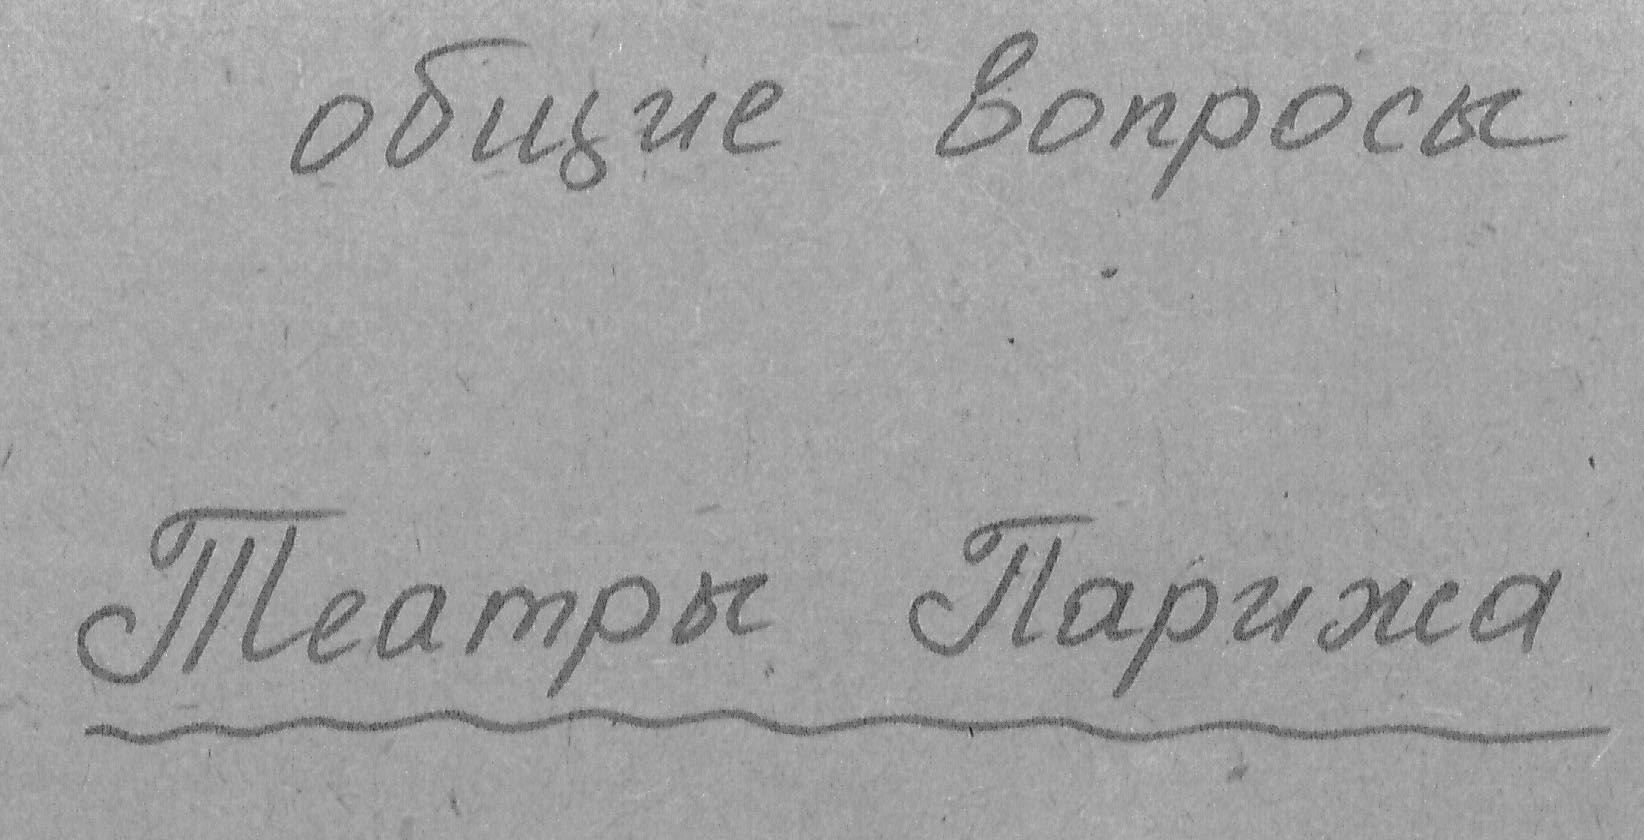 общие вопросы
Театры Парижа